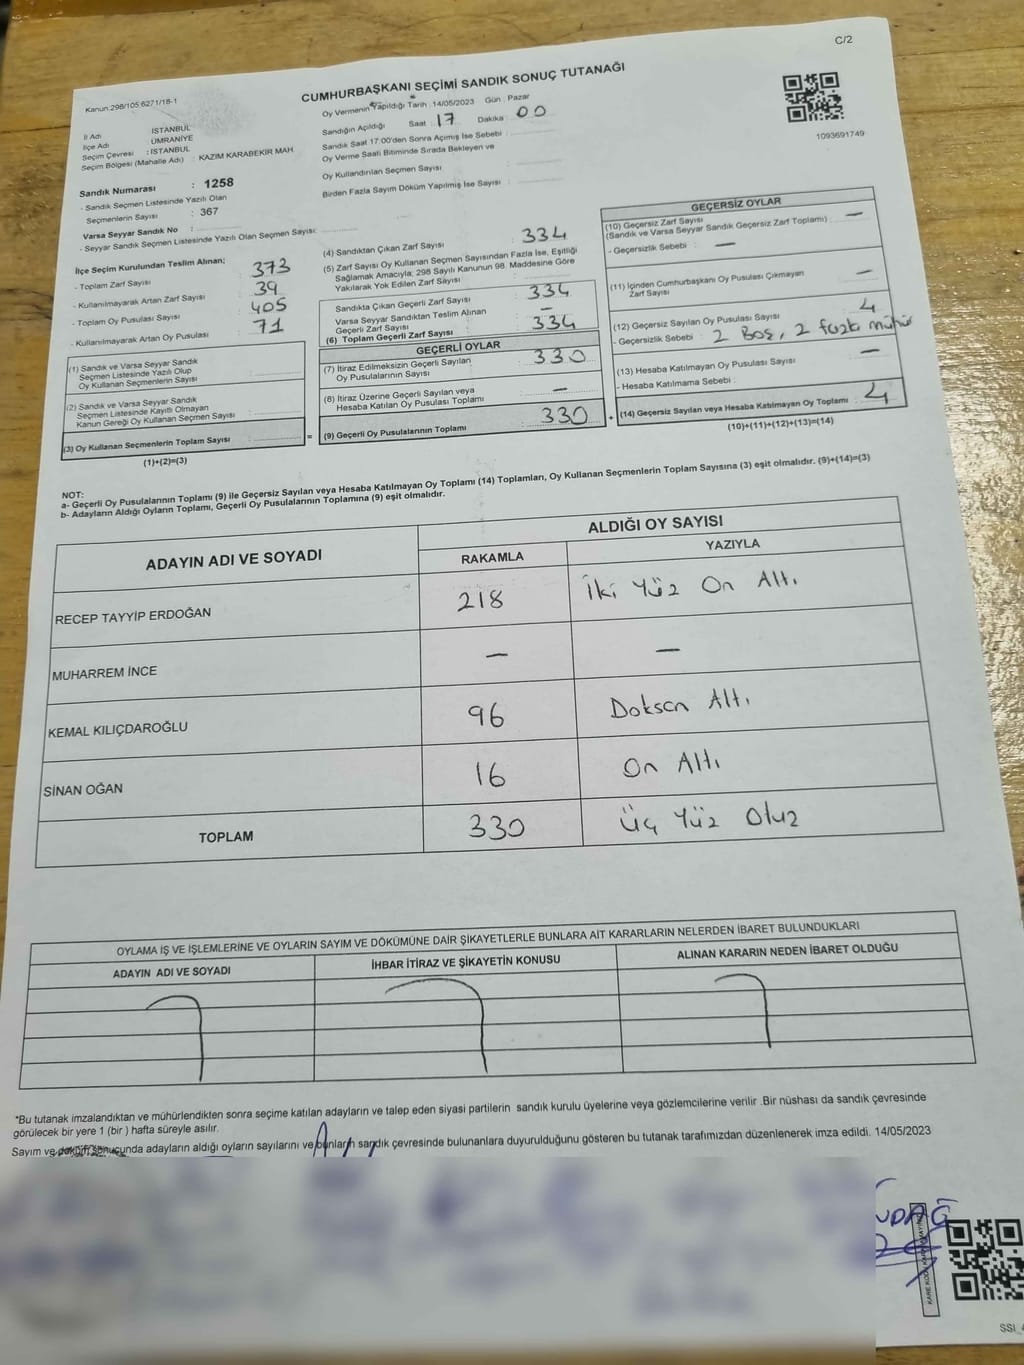 C/2
Kanun:298/105.6271/18-1
CUMHURBAŞKANI SEÇİMİ SANDIK SONUÇ TUTANAĞI
Oy Vermenin Yapıldığı Tarih : 14/05/2023 Gün : Pazar
Sandığın Açıldığı Saat : 17 Dakika : 00
Sandık Saat 17:00'den Sonra Açımış İse Sebebi :
Oy Verme Saati Bitiminde Sırada Bekleyen ve
Oy Kullandırılan Seçmen Sayısı :
Birden Fazla Sayım Döküm Yapılmış İse Sayısı :
1093691749
İl Adı : İSTANBUL
İlçe Adı : ÜMRANİYE
Seçim Çevresi : İSTANBUL
Seçim Bölgesi (Mahalle Adı) : KAZIM KARABEKİR MAH.
Sandık Numarası : 1258
- Sandık Seçmen Listesinde Yazılı Olan
Seçmenlerin Sayısı : 367
Varsa Seyyar Sandık No :
- Seyyar Sandık Seçmen Listesinde Yazılı Olan Seçmen Sayısı:
İlçe Seçim Kurulundan Teslim Alınan;
- Toplam Zarf Sayısı : 373
- Kullanılmayarak Artan Zarf Sayısı : 39
- Toplam Oy Pusulası Sayısı : 405
- Kullanılmayarak Artan Oy Pusulası : 71
(1) Sandık ve Varsa Seyyar Sandık
Seçmen Listesinde Yazılı Olup
Oy Kullanan Seçmenlerin Sayısı :
(2) Sandık ve Varsa Seyyar Sandık
Seçmen Listesinde Kayıtlı Olmayan
Kanun Gereği Oy Kullanan Seçmen Sayısı :
(3) Oy Kullanan Seçmenlerin Toplam Sayısı :
(1)+(2)=(3)
(4) Sandıktan Çıkan Zarf Sayısı : 334
(5) Zarf Sayısı Oy Kullanan Seçmen Sayısından Fazla İse, Eşitliği
Sağlamak Amacıyla; 298 Sayılı Kanunun 98. Maddesine Göre
Yakılarak Yok Edilen Zarf Sayısı :
Sandıkta Çıkan Geçerli Zarf Sayısı : 334
Varsa Seyyar Sandıktan Teslim Alınan
Geçerli Zarf Sayısı : —
(6) Toplam Geçerli Zarf Sayısı : 334
GEÇERLİ OYLAR
(7) İtiraz Edilmeksizin Geçerli Sayılan
Oy Pusulalarının Sayısı : 330
(8) İtiraz Üzerine Geçerli Sayılan veya
Hesaba Katılan Oy Pusulası Toplamı : —
= (9) Geçerli Oy Pusulalarının Toplamı : 330
GEÇERSİZ OYLAR
(10) Geçersiz Zarf Sayısı
(Sandık ve Varsa Seyyar Sandık Geçersiz Zarf Toplamı) : —
- Geçersizlik Sebebi : —
(11) İçinden Cumhurbaşkanı Oy Pusulası Çıkmayan
Zarf Sayısı : —
(12) Geçersiz Sayılan Oy Pusulası Sayısı : 4
- Geçersizlik Sebebi : 2 Boş, 2 fazla mühür
(13) Hesaba Katılmayan Oy Pusulası Sayısı : —
- Hesaba Katılmama Sebebi :
+ (14) Geçersiz Sayılan veya Hesaba Katılmayan Oy Toplamı : 4
(10)+(11)+(12)+(13)=(14)
NOT:
a- Geçerli Oy Pusulalarının Toplamı (9) ile Geçersiz Sayılan veya Hesaba Katılmayan Oy Toplamı (14) Toplamları, Oy Kullanan Seçmenlerin Toplam Sayısına (3) eşit olmalıdır. (9)+(14)=(3)
b- Adayların Aldığı Oyların Toplamı, Geçerli Oy Pusulalarının Toplamına (9) eşit olmalıdır.
ADAYIN ADI VE SOYADI ALDIĞI OY SAYISI
RAKAMLA YAZIYLA
RECEP TAYYİP ERDOĞAN 218 İki Yüz On Altı
MUHARREM İNCE — —
KEMAL KILIÇDAROĞLU 96 Doksan Altı
SİNAN OĞAN 16 On Altı
TOPLAM 330 Üç Yüz Otuz
OYLAMA İŞ VE İŞLEMLERİNE VE OYLARIN SAYIM VE DÖKÜMÜNE DAİR ŞİKAYETLERLE BUNLARA AİT KARARLARIN NELERDEN İBARET BULUNDUKLARI
ADAYIN ADI VE SOYADI İHBAR İTİRAZ VE ŞİKAYETİN KONUSU ALINAN KARARIN NEDEN İBARET OLDUĞU
*Bu tutanak imzalandıktan ve mühürlendikten sonra seçime katılan adayların ve talep eden siyasi partilerin sandık kurulu üyelerine veya gözlemcilerine verilir .Bir nüshası da sandık çevresinde
görülecek bir yere 1 (bir ) hafta süreyle asılır.
Sayım ve döküm sonucunda adayların aldığı oyların sayılarını ve bunların sandık çevresinde bulunanlara duyurulduğunu gösteren bu tutanak tarafımızdan düzenlenerek imza edildi. 14/05/2023